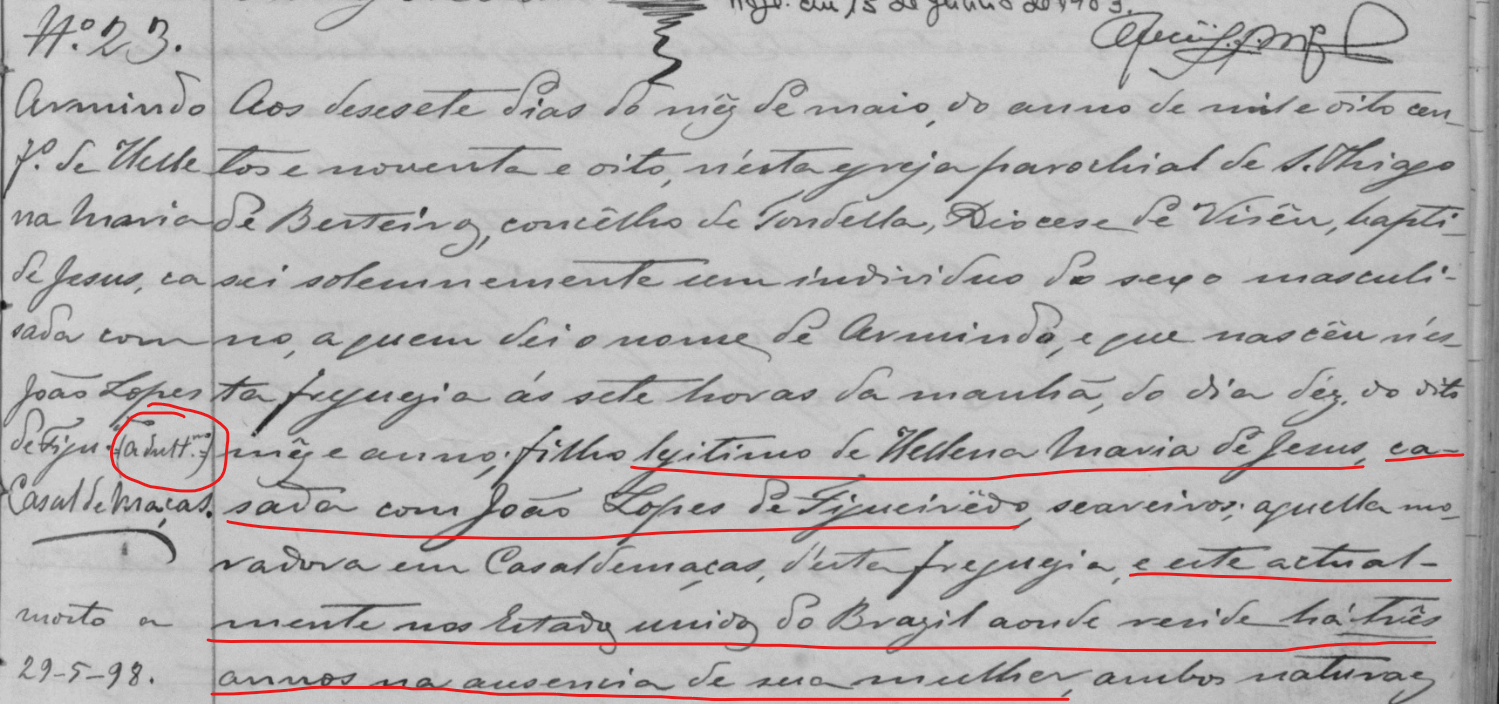 Regt. em 15 de Junho de 1903.
N.º 23.
Armindo
f.º de Helle
na Maria
de Jesus, ca
sada com
João Lopes
de Figu.
Casal de maçãs.
morto a
29-5-98.
Aos desesete dias do mêz de maio, do anno de mil e oito cen-
tos e noventa e oito, n'esta egreja parochial de S. Thiago
de Besteiros, concêlho de Tondella, Diocese de Visêu, bapti-
sei solemnemente um individuo do sexo masculi-
no, a quem dei o nome de Armindo, e que nascêu n'es-
ta freguezia ás sete horas da manhã, do dia déz, do dito
mêz e anno; filho legitimo de Hellena Maria de Jesus, ca-
sada com João Lopes de Figueirêdo, seareiros; aquella mo-
radora em Casaldemaças, d'esta freguezia, e este actual-
mente nos Estados unidos do Brazil aonde reside há três
annos na ausencia de sua mulher, ambos naturaes